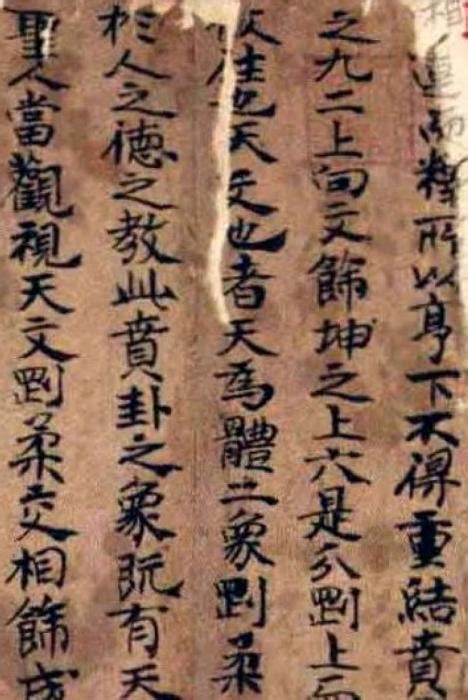 連而釋所以亨下不得重結賁
之九二上向文飾坤之上六是分剛上而
攸往也天文也者天為體二象剛柔
扵人之德之教此賁卦之象既有天
聖人當觀視天文剛柔交相飾成